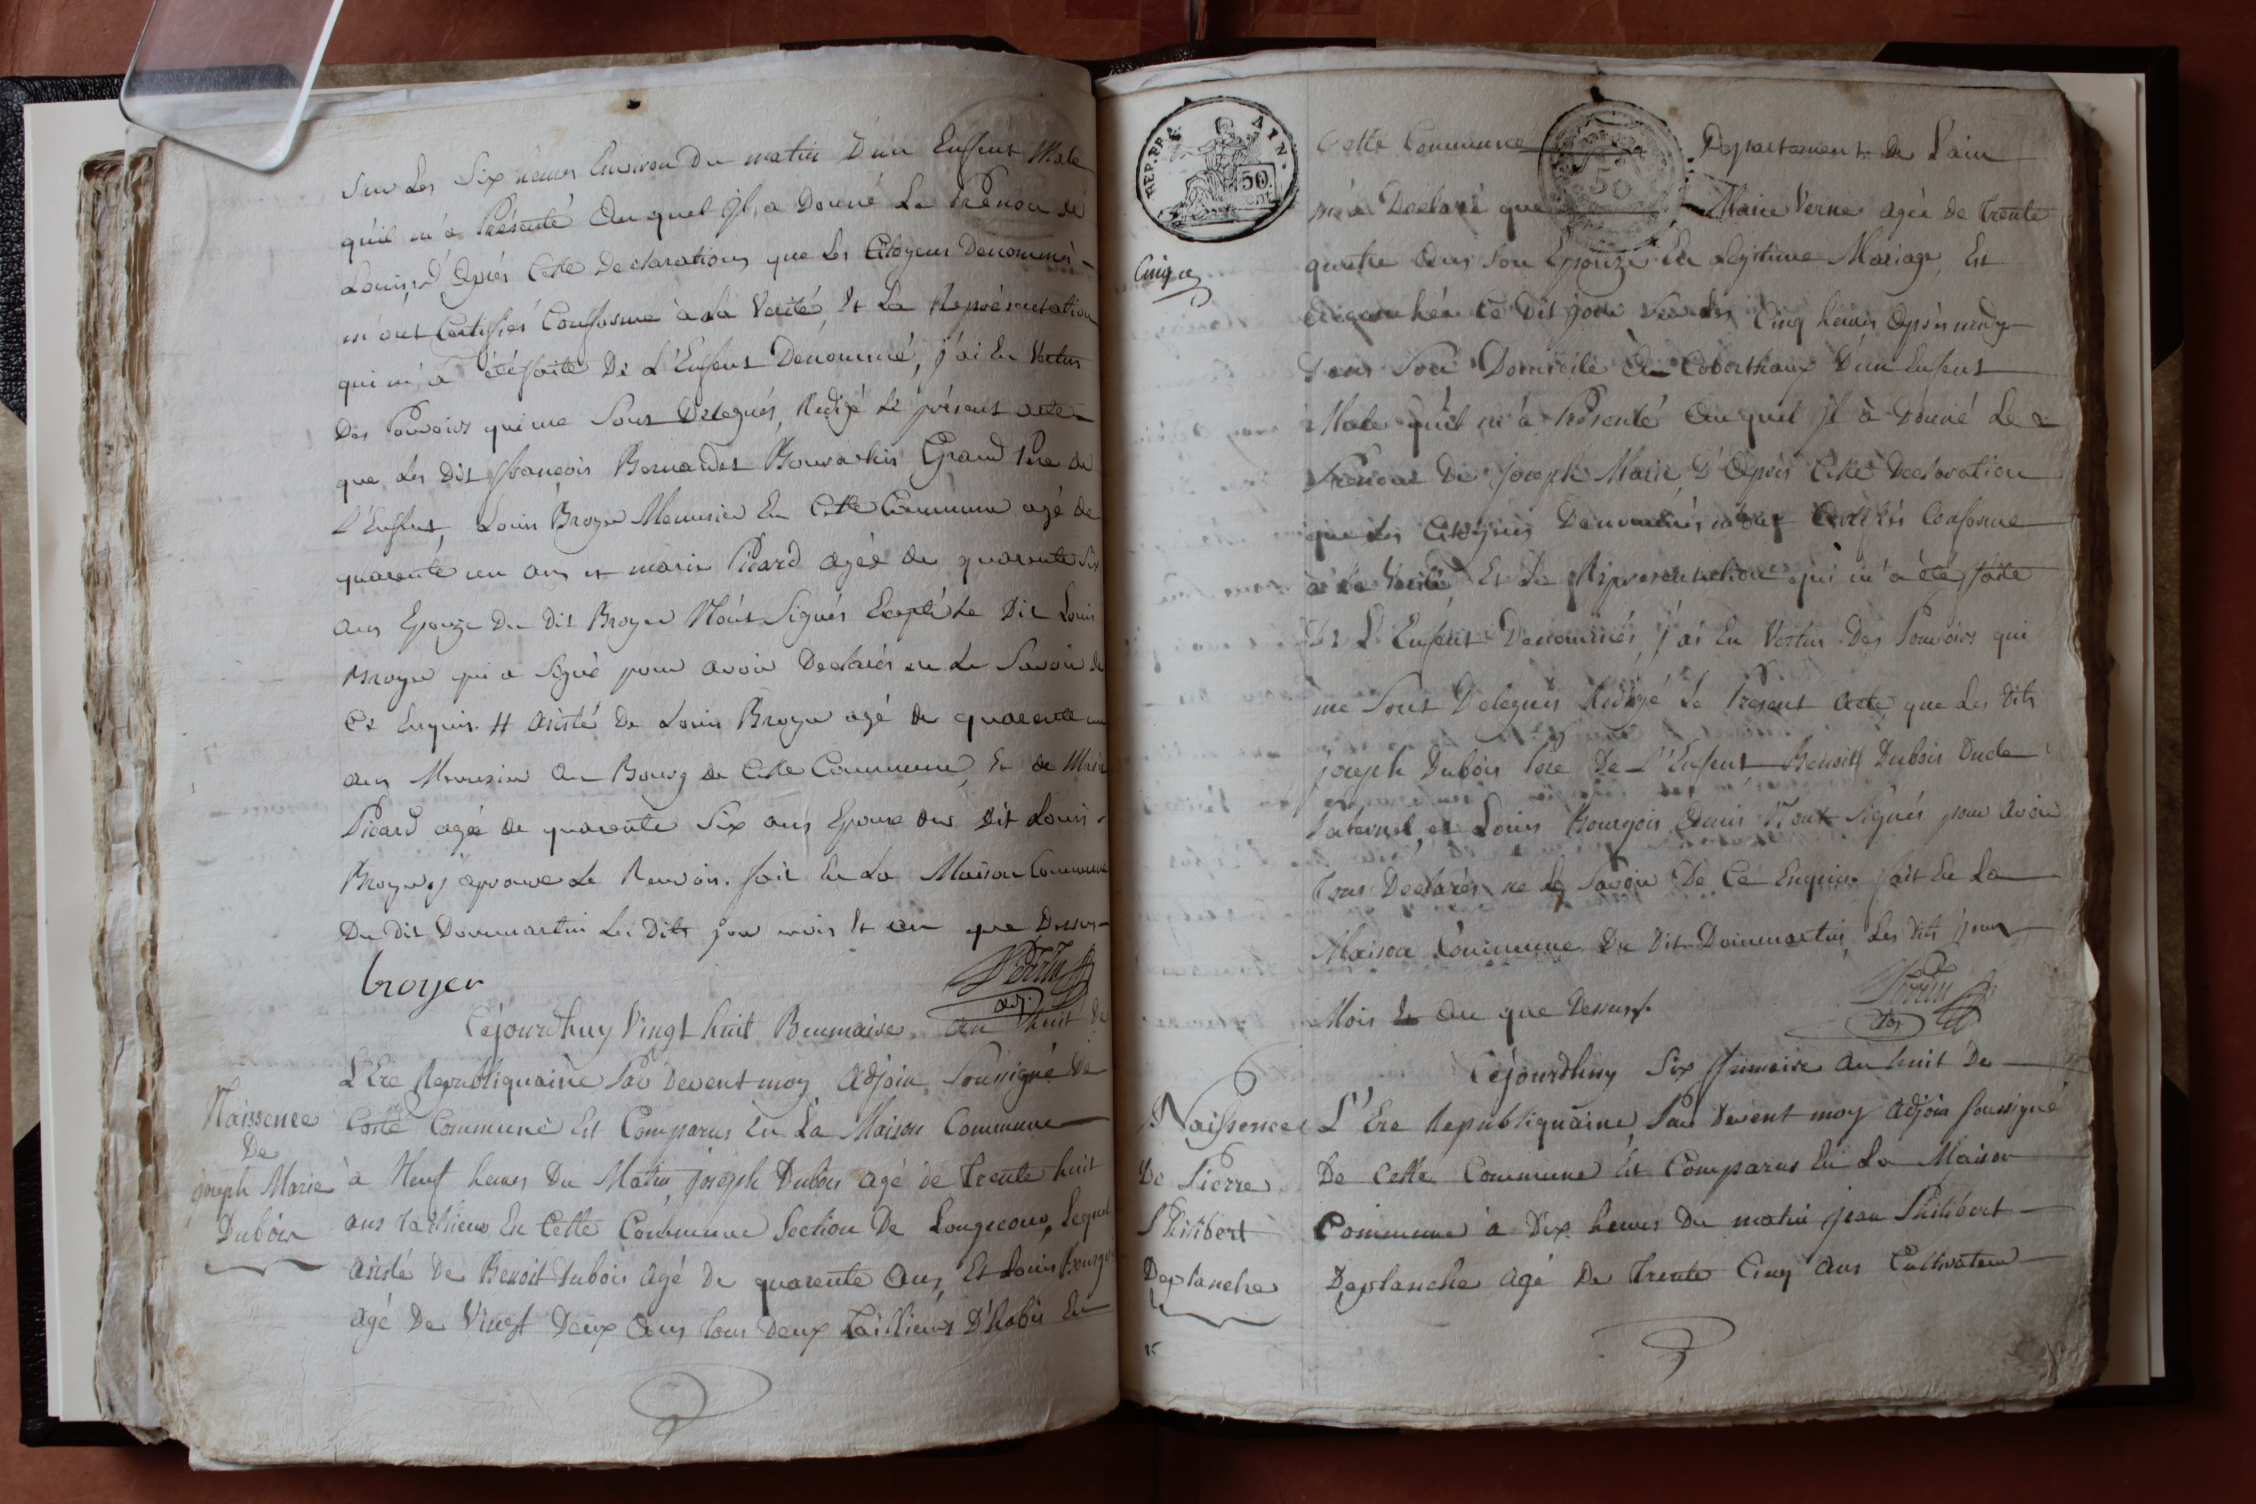 Sur les Six heures Environ Du matin D'un Enfent Male
qu'il m'a Présenté Auquel Jl a Donné Le Prénom de
Louis, D'Après Cette Declarations que les Citoyens Denommés
m'ont Certifiés Conforme à la Verité, Et La Représentation
qui m'a été faite De L'Enfent Denommé, j'ai En Vertus
Des Pouvoirs qui me Sont Delegués, Redigé Le présent acte
que Les Dit françois Bernardet Grand Pere de
L'Enfent, Louis Broyer Menusier En Cette Commune agé de
quarente un ans et marie Picard agée de quarente Six
ans Epouze Du Dit Broyer N'ont Signés Excepté Le Dit Louis
Broyer qui a Signé pour avoir Declarés ne Le Savoir de
Ce Enquis. # Asisté De Louis Broyer agé de quarente un
ans Menusier Au Bourg de Cette Commune, Et de Marie
Picard agée de quarente Six ans Epouse du dit Louis
Broyer, j'aprouve Le Renvois. fait En La Maison Commune
Du Dit Dommartin Les Dits jour mois Et an que Dessus
broyer
adj.
Céjourdhuy Vingt huit Brumaire an huit De
L'Ere Republiquaine Par Devent moy Adjoin Soussigné De
Cette Commune Est Comparus En La Maison Commune
à Neuf heures Du Matin joseph Dubois agé de trente huit
ans En Cette Commune Section De Longecour, Lequel
Asisté De Benoit Dubois Agé De quarente Ans, Et Louis Bourgois
Agé De Vingt Deux Ans tous Deux taillieurs D'habis En
Naissence
De
joseph Marie
Dubois
REP. FRA. AYN.
50
cent.
50
Cinq
Cette Commune Departement de Lain
m'a Declaré que Marie Verne agée de trente
quatre Ans Son Epouze En Legitime Mariage, Est
Ce Dit jour Sur les Cinq heures Après midy
Dans Son Domicile D'un Enfent
Male qu'il m'a Présenté Auquel Jl à Donné Le
Prénom De joseph Marie D'Après Cette Declaration
que Les Citoyens Denommés m'ont Certifiés Conforme
à la Verité Et La Représentation qui m'a été faite
De L'Enfent Denommés, j'ai En Vertus Des Pouvoirs qui
me Sont Delegués Redigé Le Present Acte que Les Dits
joseph Dubois Pere De L'Enfent Benoit Dubois Oncle
Paternel, et Louis Bourgois N'ont Signés pour avoir
tous Declarés ne Le Savoir De Ce Enquis fait En La
Maison Commune Du Dit Dommartin Les Dits jour
Mois Et An que Dessus.
Céjourdhuy Six frimaire an huit De
L'Ere Republiquaine Par Devent moy Adjoin Soussigné
De Cette Commune Est Comparus En La Maison
Commune à Dix heures Du matin jean Philibert
Deplanche Agé De trente Cinq Ans Cultivateur
Naissence
De Pierre
Philibert
Deplanche